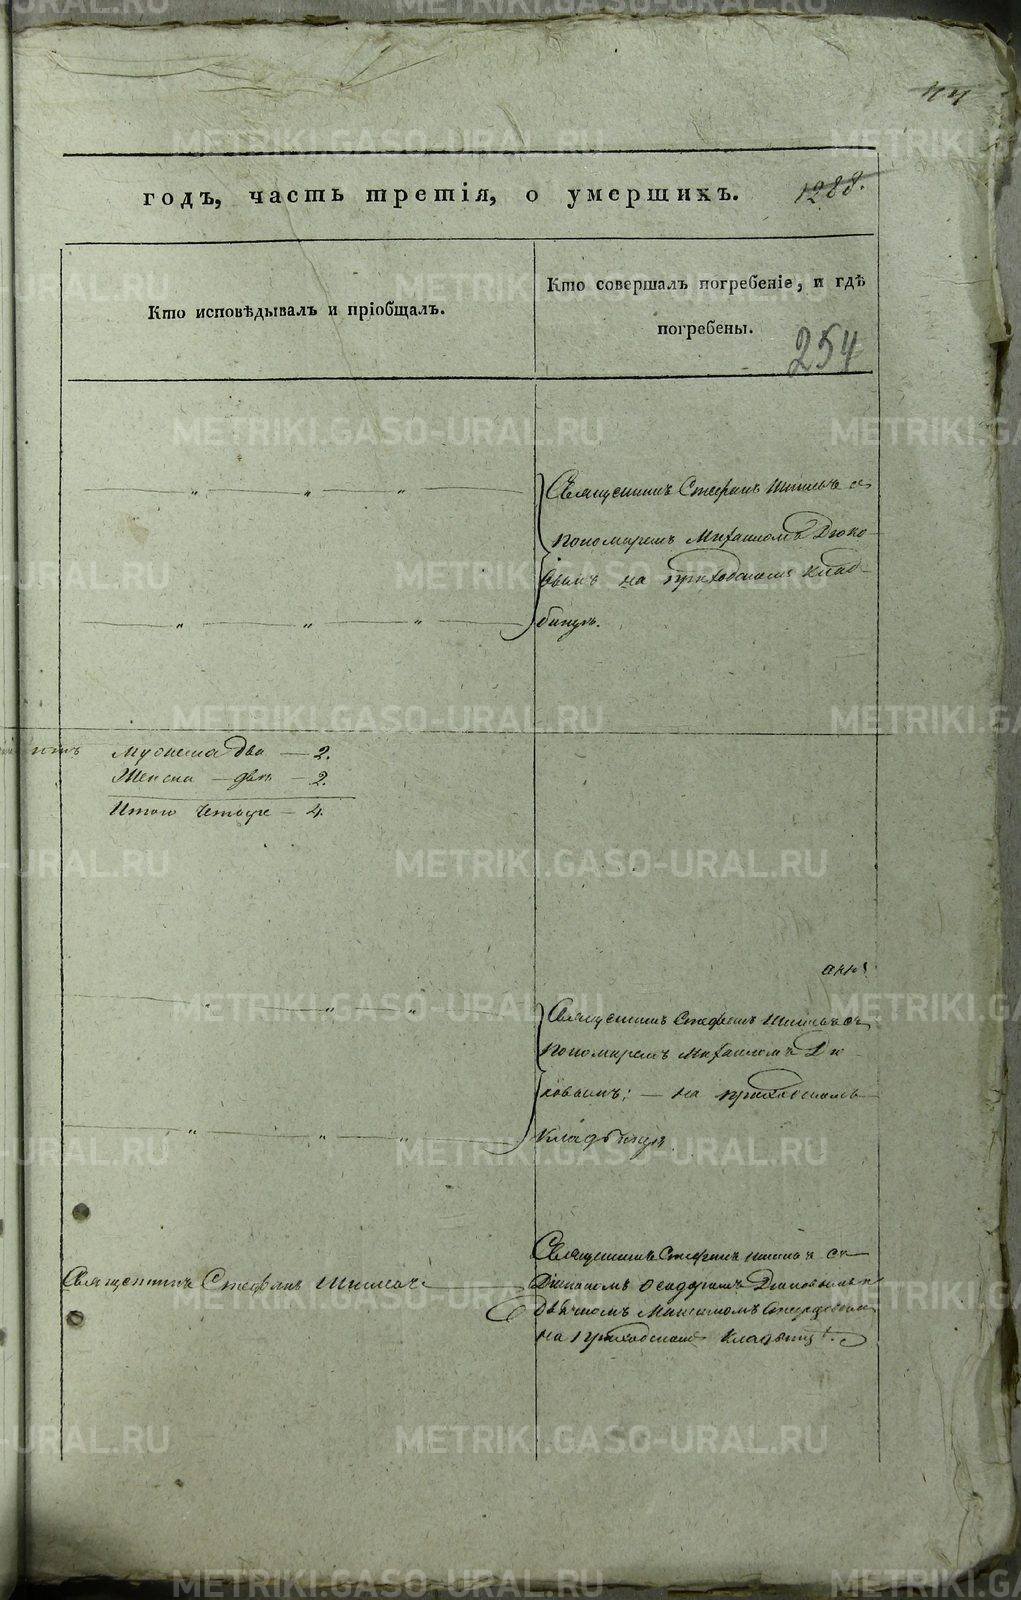 годъ, часть третія, о умершихъ. 1288.
Кто исповѣдывалъ и пріобщалъ.
Кто совершалъ погребеніе, и гдѣ
погребены.
254
Священникъ Стефанъ съ
пономаремъ Михаиломъ Дюко-
вымъ на приходскомъ клад-
бищѣ.
Мужеска два — 2.
Женска — двѣ — 2.
Итого четыре — 4.
Священникъ Стефанъ съ
пономаремъ Михаиломъ Дю-
ковымъ: — на приходскомъ
кладбищѣ.
Священникъ Стефанъ
Священникъ Стефанъ съ
Діакономъ и
дьячкомъ Максимомъ
на приходскомъ кладбищѣ.
METRIKI.GASO-URAL.RU